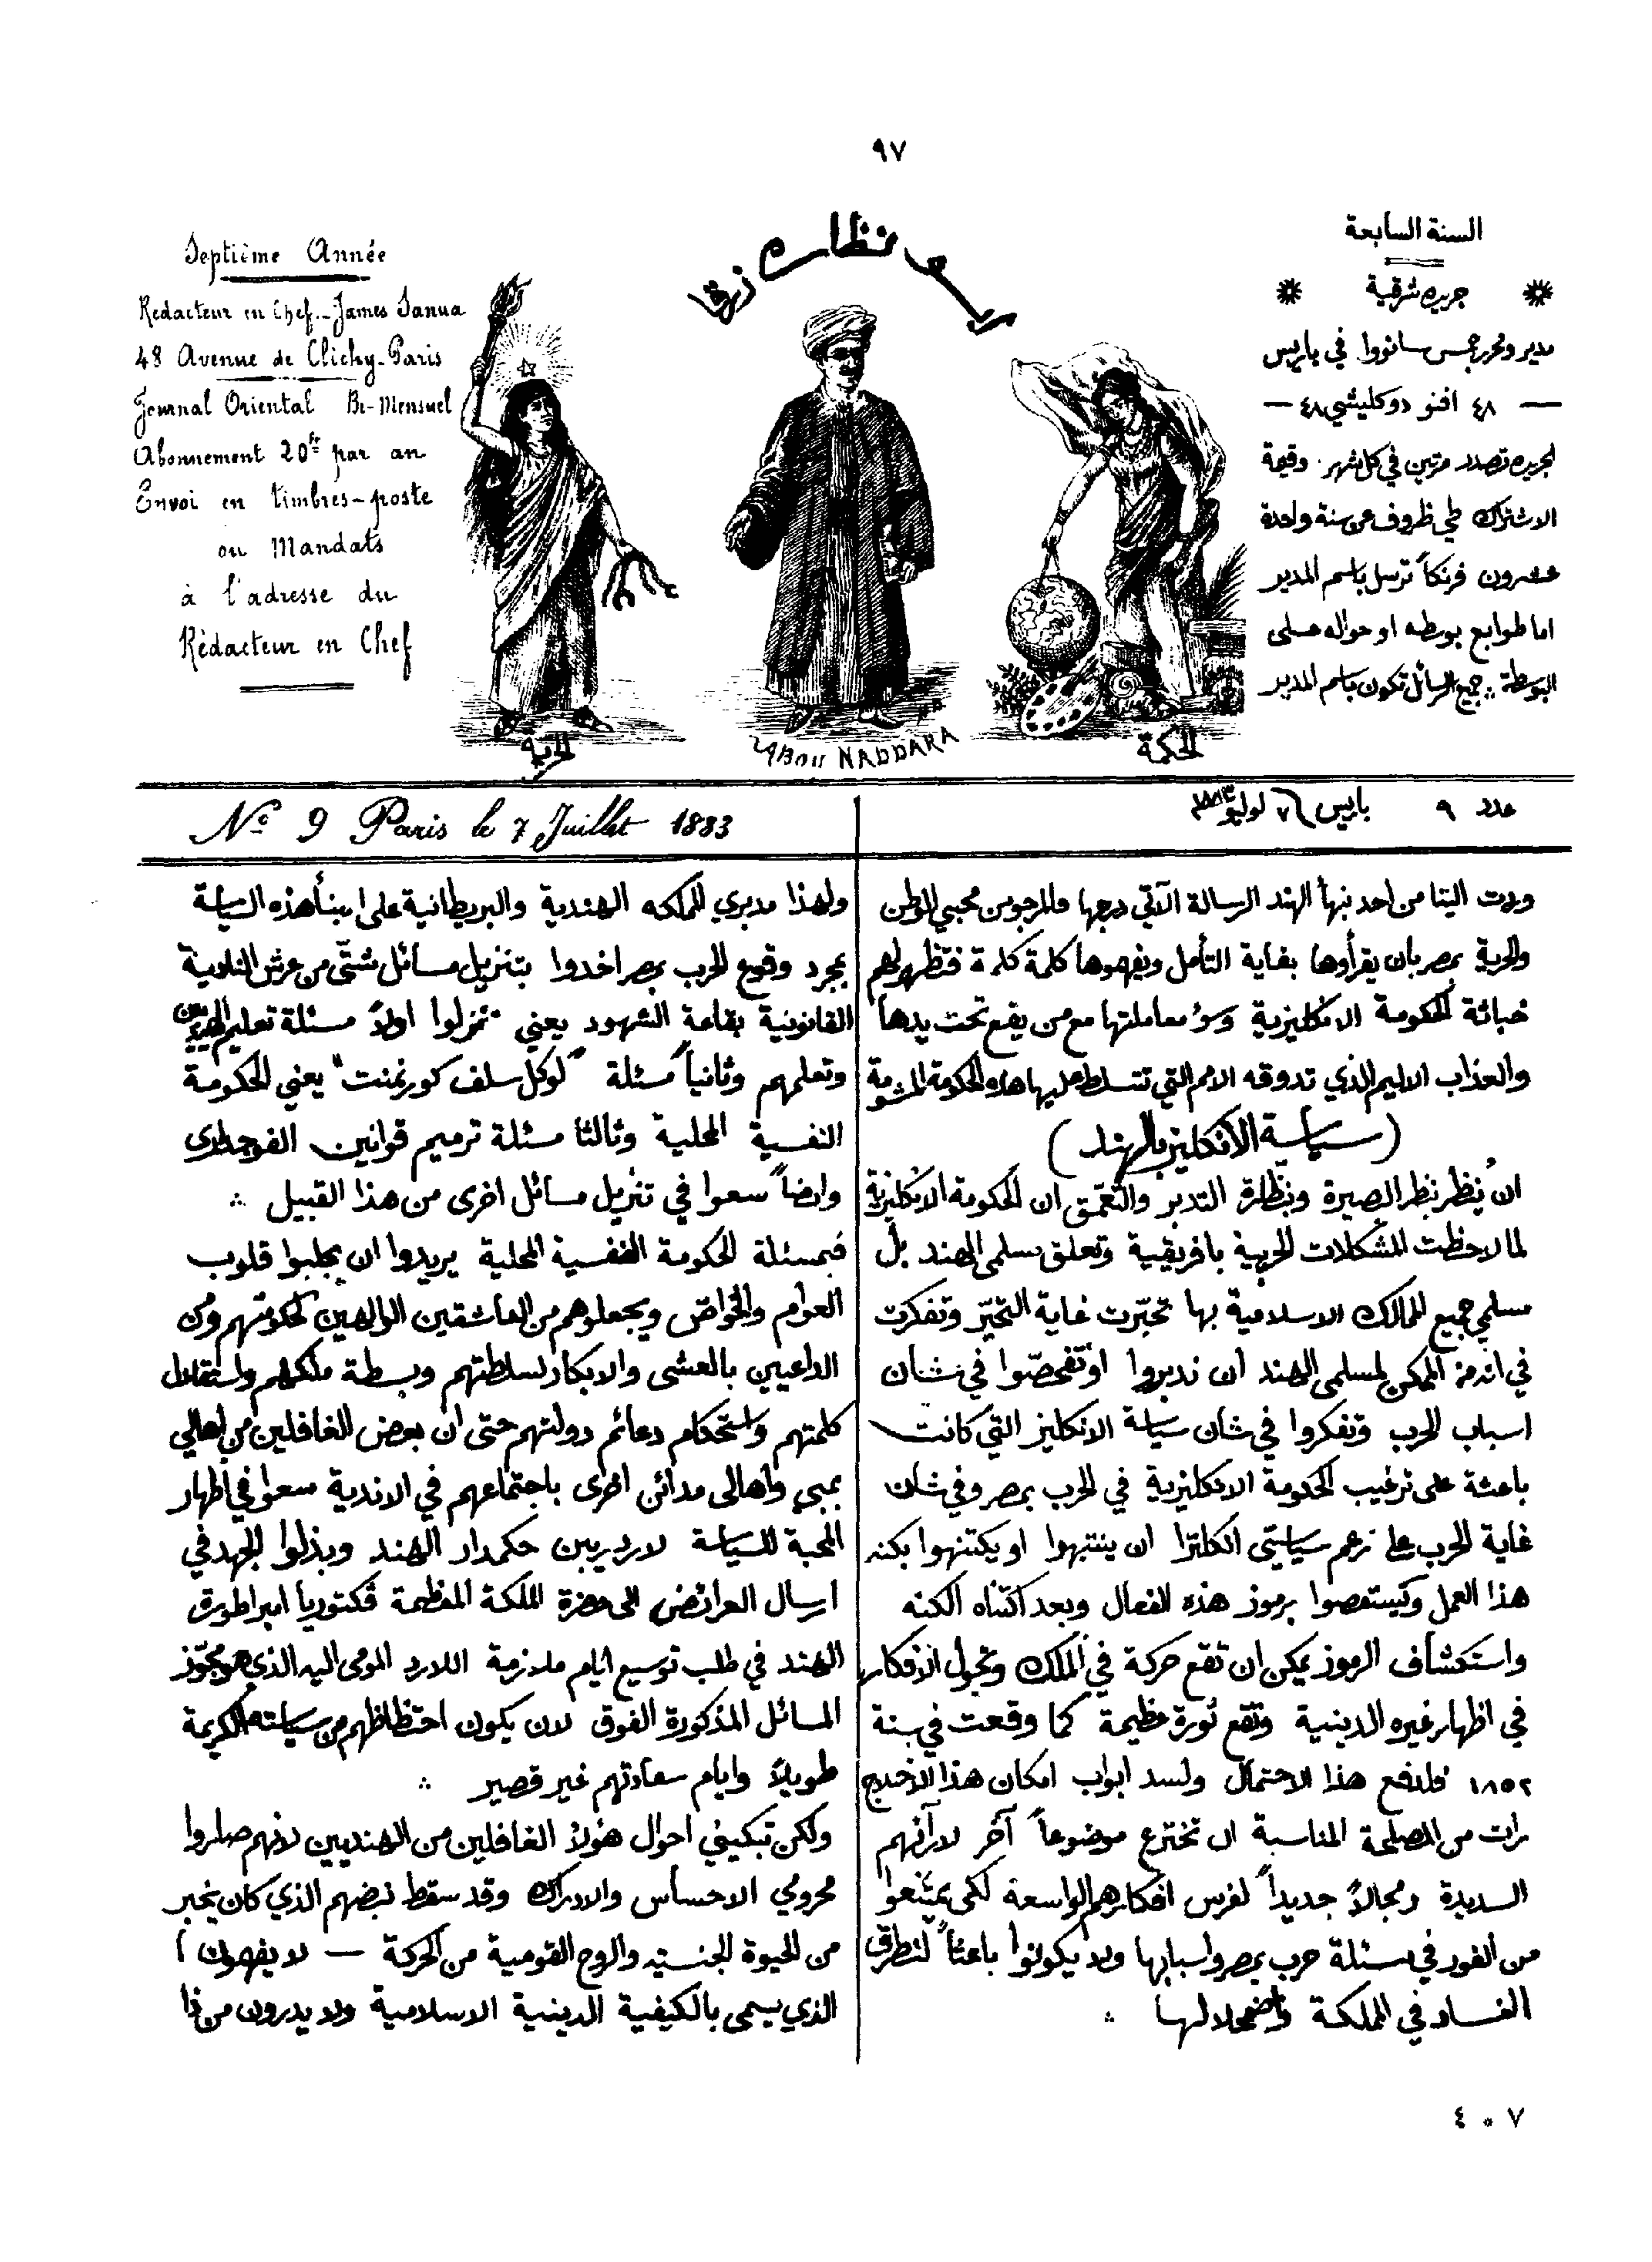 ٩٧
السنة السابعة
جريده شرقية
مدير ومحرر جمس سانووا في باريس
— ٤٨ افنو دوكليشي ٤٨ —
الجريده تصدر مرتين في كل شهر . وقيمة
الاشتراك طي ظروف عن سنة واحدة
عشرون فرنكاً ترسل باسم المدير
اما طوابع بوسطه او حواله على
البوسطة ؞ جميع الرسائل تكون باسم المدير
نظاره زرقا
Septième Année
Rédacteur en Chef _ James Sanua
48 Avenue de Clichy_Paris
Journal Oriental Bi-Mensuel
Abonnement 20fr par an
Envoi en timbres-poste
ou Mandats
à l'adresse du
Rédacteur en Chef
الحرية
ABOU NADDARA
الحكمة
عدد ٩ باريس ٧ لوليو ١٨٨٣
No 9 Paris le 7 Juillet 1883
وردت الينا من احد نبهأ الهند الرسالة الآتي درجها والمرجو من محبي الوطن
والحرية بمصر بان يقرأوها بغاية التأمل ويفهموها كلمة كلمة فتظهر لهم
خباثة الحكومة الانكليزية وسؤ معاملتها مع من يقع تحت يدها
والعذاب الاليم الذي تدوقه الامم التي تتسلط عليها هذه الحكومة المشومة
(سياسة الأنكليز بالهند)
ان يُنظر نظر البصيرة وبنظّارة التدبر والتعمّق ان الحكومة الانكليزية
لما لاحظت المشكلات الحربية بافريقية وتعلق مسلمى الهند بل
مسلمي جميع الممالك الاسلامية بها تحيّرت غاية التحيّر وتفكرت
في انه من الممكن لمسلمى الهند ان تدبروا او تفحصّوا في شان
اسباب الحرب وتفكروا في شان سياسة الانكليز التي كانت
باعثة على ترغيب الحكومة الانكليزية في الحرب بمصر وفي شان
غاية الحرب على زعم سياستى انكلترا ان ينتبهوا او يكتنهوا بكنه
هذا العمل ويستقصوا برموز هذه الفعال وبعد اكتناه الكنه
واستكشاف الرموز يمكن ان تقع حركة في الملك وتحول الافكار
في اظهار غيره الدينية وتقع ثورة عظيمة كما وقعت في سنة
١٨٥٢ فلدفع هذا الاحتمال ولسد ابواب امكان هذا
رات من المصلحة المناسبة ان تخترع موضوعاً آخر لارآئهم
السديدة ومجالاً جديداً لغرس افكارهم الواسعة لكى يمتنعوا
من الغور في مسئلة حرب بمصر واسبابها ولا يكونوا باعثاً لتطرق
الفساد في المملكة واضمحلالها ؞
ولهذا مديري المملكه الهندية والبريطانية على مبنأ هذه السياسة
بمجرد وقوع الحرب بمصر اخدوا بتنزيل مسائل شتّى من عرش
القانونية بقاعة الشهود يعني نزلوا اولاً مسئلة تعليم الهنديين
وتعلمهم وثانياً مسئلة "لوكل سلف كورنمنت" يعني الحكومة
النفسية المحلية وثالثا مسئلة ترميم قوانين الفوجدارى
وايضاً سعوا في تنزيل مسائل اخرى من هذا القبيل ؞
فبمسئلة الحكومة النفسية المحلية يريدوا ان يجلبوا قلوب
العوام والخواصّ ويجعلوهم من العاشقين الوالهين لحكومتهم ومن
الداعيين بالعشى والابكار لسلطتهم وبسطة ملكهم واستقلال
كلمتهم واستحكام دعائم دولتهم حتى ان بعض الغافلين من اهالي
بمبي واهالى مدائن اخرى باجتماعهم في الاندية سعوا في اظهار
المحبة للسياسة لارد ريبن حكمدار الهند وبذلوا الجهد في
ارسال العرائض الى حضرة الملكة المعظمة ڤكتوريا امبراطورة
الهند في طلب توسيع ايام ملازمة اللارد المومى اليه الذي هو مجوّز
المسائل المذكورة الفوق لان يكون احتظاظهم من سياسته الكريمة
طويلاً وايام سعادتهم غير قصير ؞
ولكن تبكيني احوال هؤلاً الغافلين من الهنديين لانهم صاروا
محرومي الاحساس والادراك وقد سقط نبضهم الذي كان يخبر
من الحيوة الجنسيه والروح القومية من الحركة — لا يفهمون
الذي يسمى بالكيفية الدينية الاسلامية ولا يدرون من ذا
٧ * ٤